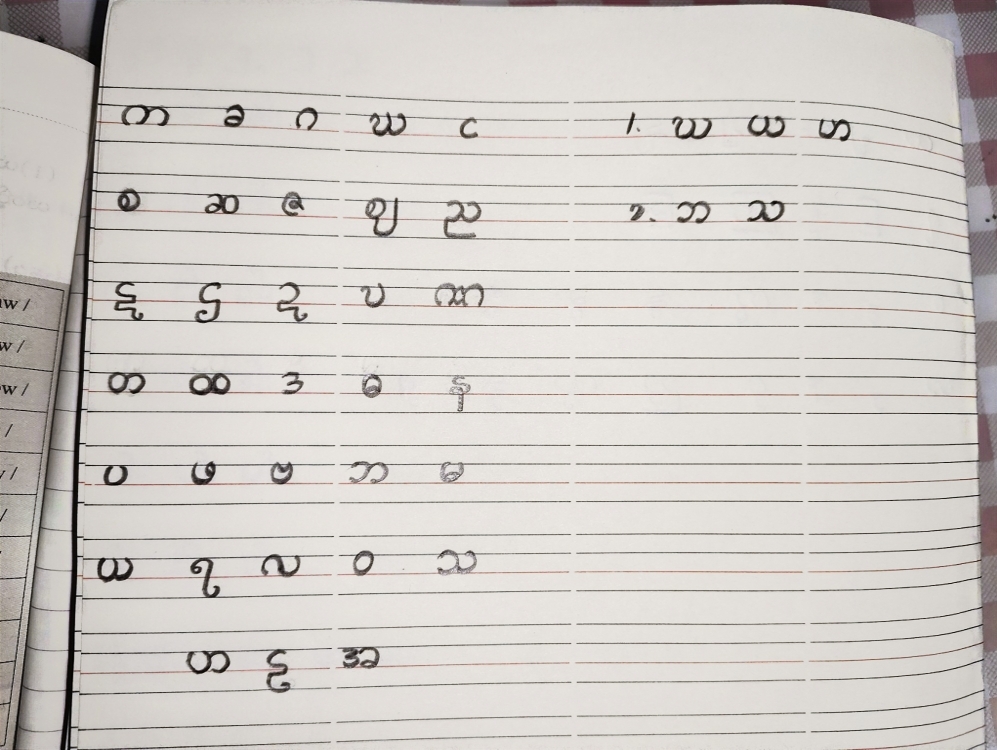 က ခ ဂ ဃ င 1. ဃ ယ ဟ
စ ဆ ဇ ဈ ည 2. ဘ သ
ဋ ဌ ဍ ဎ ဏ
တ ထ ဒ ဓ န
ပ ဖ ဗ ဘ မ
ယ ရ လ ဝ သ
ဟ ဠ အ